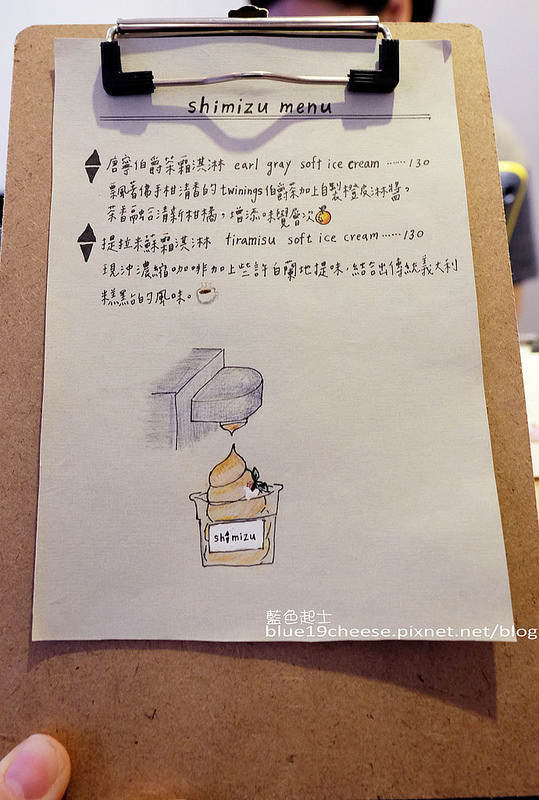 shimizu menu
唐寧伯爵茶霜淇淋 earl gray soft ice cream ……130
飄著佛手柑清香的twinings伯爵茶加上自製橙皮淋醬，
茶香融合清新柑橘，增添味覺層次
提拉米蘇霜淇淋 tiramisu soft ice cream……130
現沖濃縮咖啡加上些許白蘭地提味，結合出傳統義大利
糕點的風味。
shimizu
藍色起士
blue19cheese.pixnet.net/blog